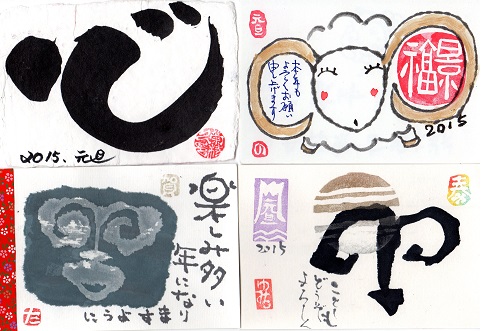 心
2015. 元旦
元旦
本年も
よろしくお願い
申し上げます
景福
2015
の
賀
楽しみ多い
年になり
ますように
た
2015
ことしも
どうぞ
よろしく